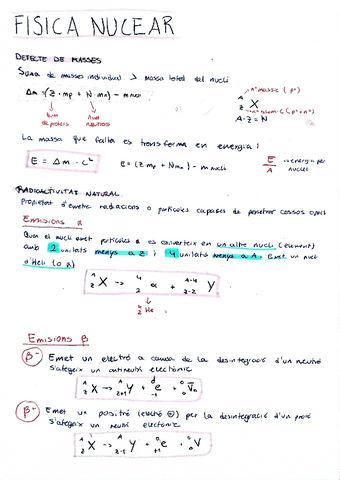 FISICA NUCEAR
DEFECTE DE MASSES
Suma de masses individual > massa total del nucli
Δm = (Z · mp + N · mn) - m nucli
num de protons
num neutrons
A Z X
nº massic (p⁺
A - Z = N
La massa que falta es transforma en energia:
E = Δm · c²
E = (Z · mp + N mn) - m nucli
E/A → energia per nucleó
RADIOACTIVITAT NATURAL
Propietat d'emetre radiacions o partícules capaces de penetrar cossos opacs
Emisions α
Quan el nucli emet partícules α es converteix en un altre nucli (element)
amb 2 unitats menys a Z i 4 unitats menys a A. Emet un nucli
d'Heli (o α)
A Z X → 4 2 α + A-4 Z-2 Y
4 2 He
Emisions β
β⁻ Emet un electró a causa de la desintegració d'un neutró
S'afegeix un antineutrí electrònic
A Z X → A Z+1 Y + 0 -1 e + 0 0 ν̄e
β⁺ Emet un positró (electró ⊕) per la desintegració d'un protó
S'afegeix un neutrí electrònic
A Z X → A Z-1 Y + 0 +1 e + 0 0 ν